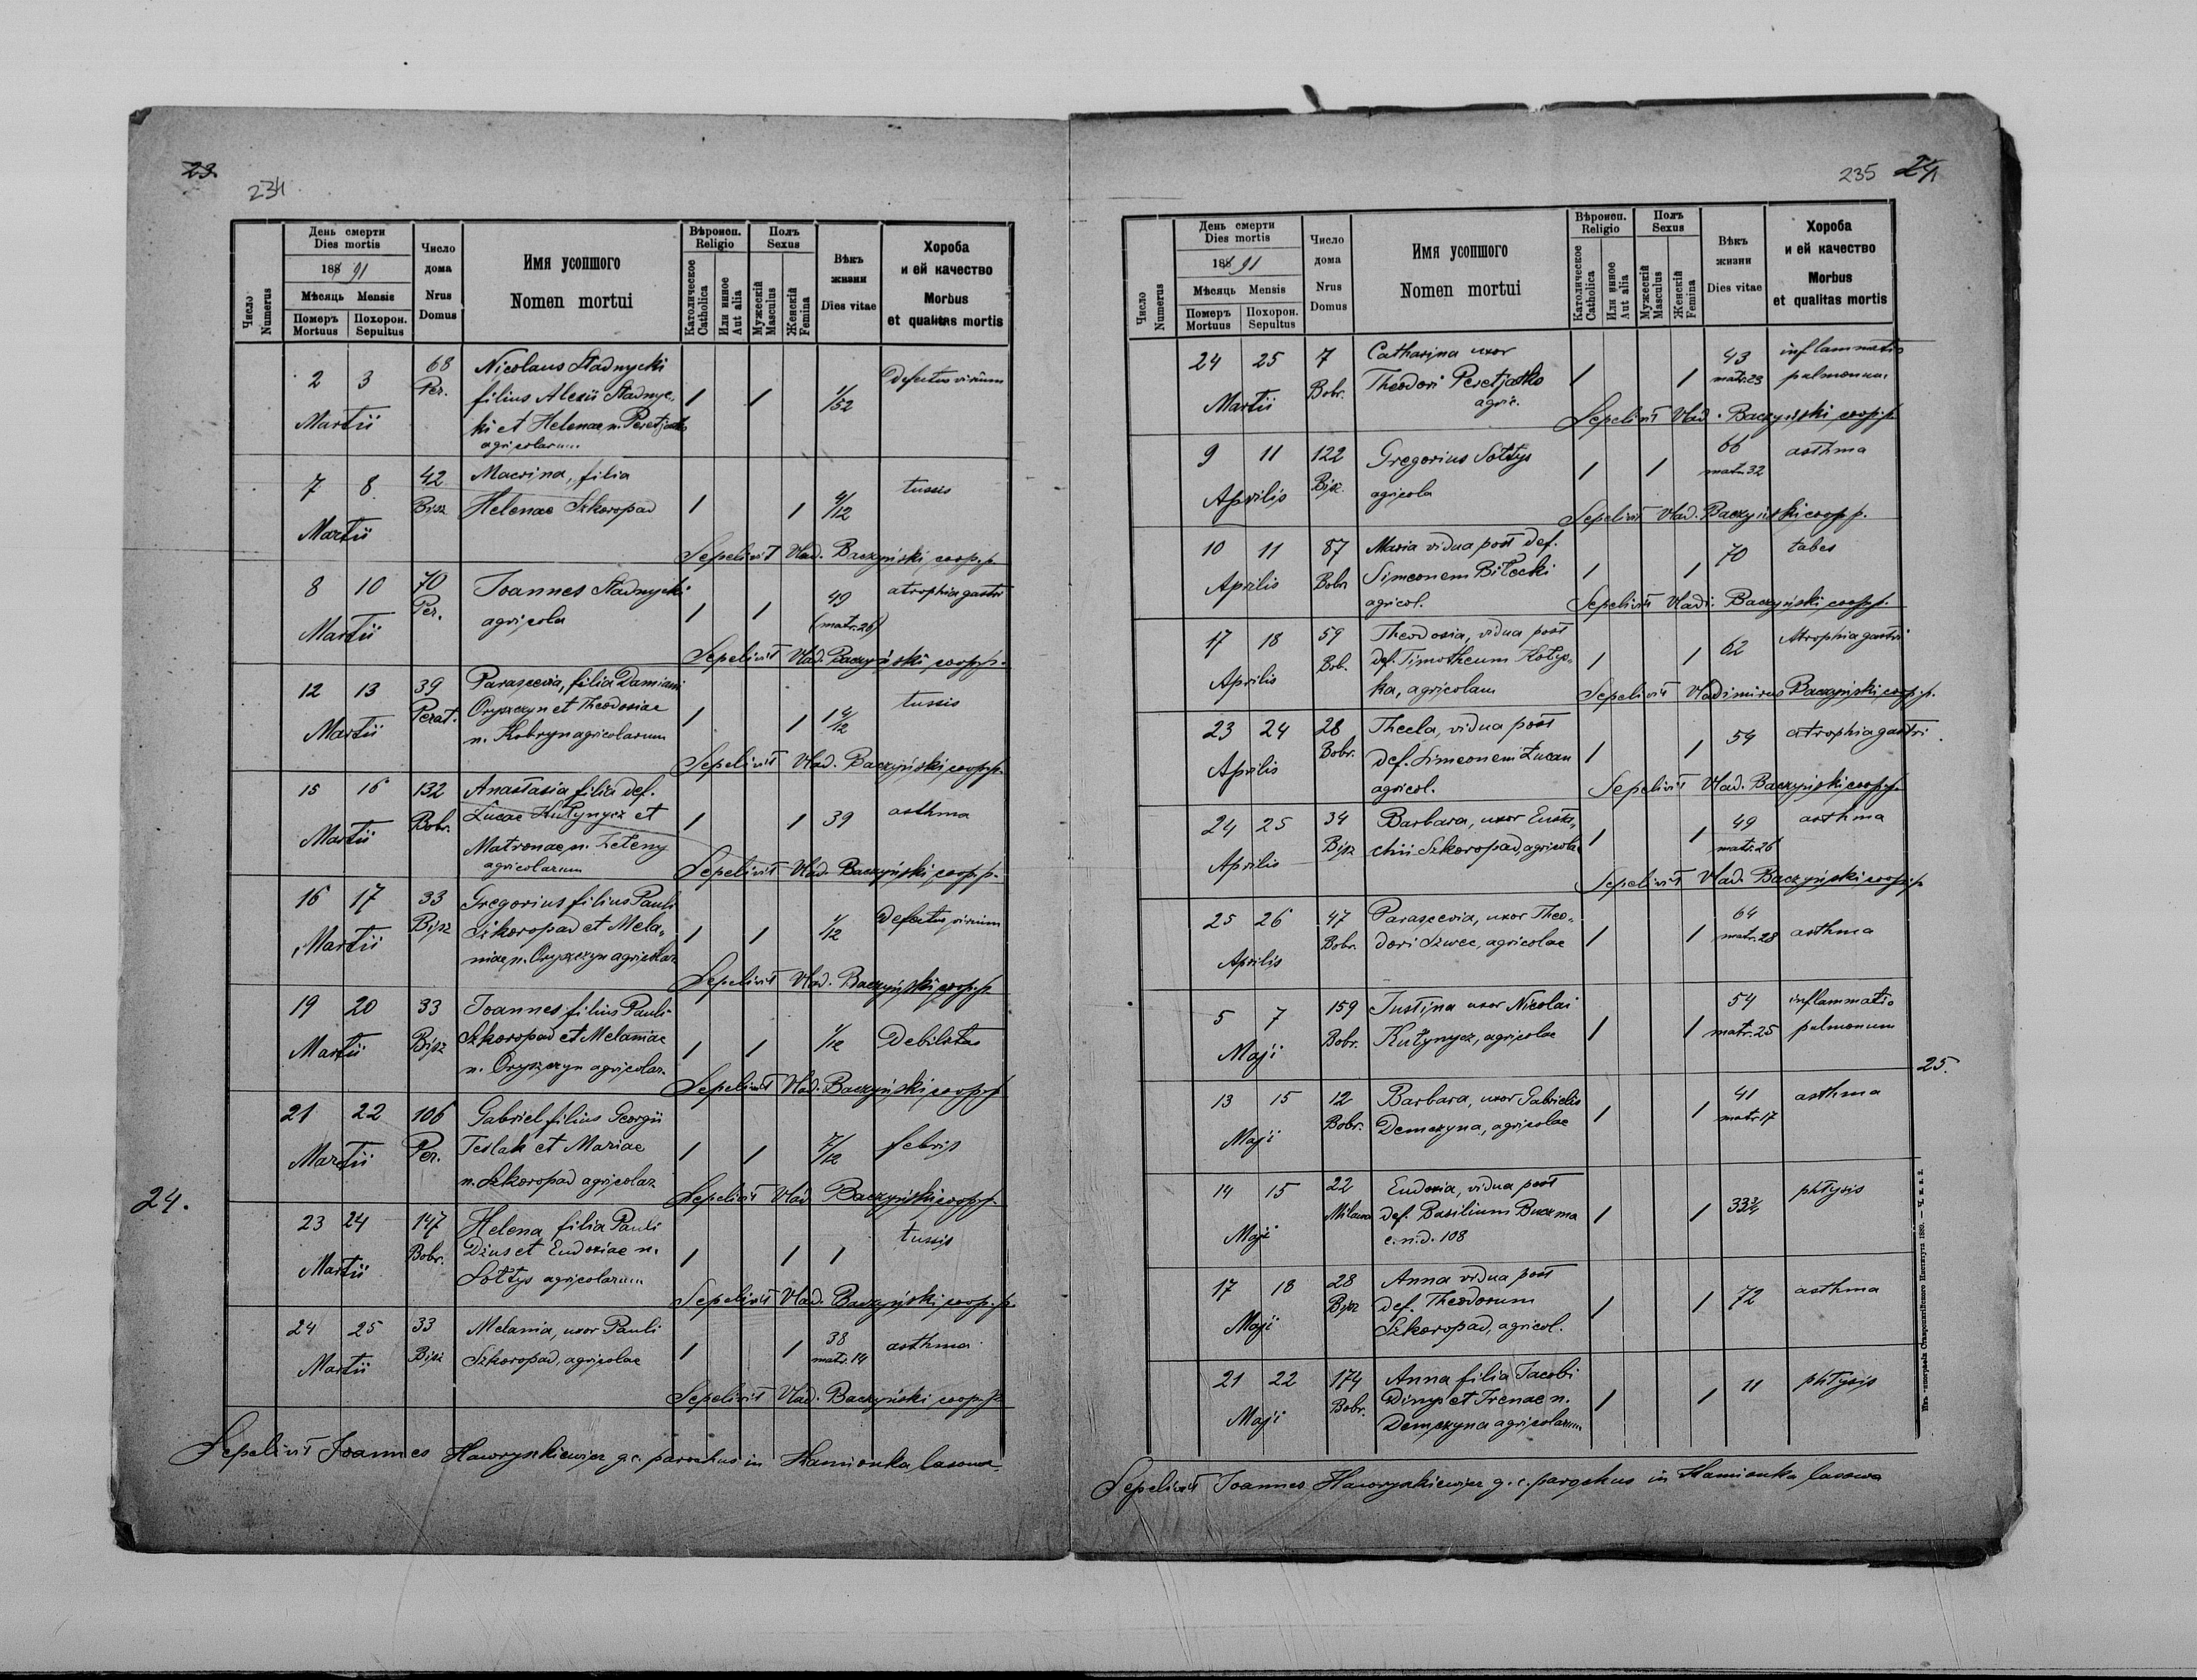 23.
234
Число
Numerus
День смерти
Dies mortis
188/91
Мѣсяць Mensis
Померъ
Mortuus
Похорон.
Sepultus
Число
дома
Nrus
Domus
Имя усопшого
Nomen mortui
Вѣроисп.
Religio
Католическое
Catholica
Или иное
Aut alia
Полъ
Sexus
Мужескій
Masculus
Женскій
Femina
Вѣкъ
жизни
Dies vitae
Хороба
и ей качество
Morbus
et qualitas mortis
2 3 68 Nicolaus Stadnycki
Per. filius Alexii Stadnyc- / / 1/52 Defectus virium
Martii ki et Helenae n. Peretjatko
agricolarum
7 8 42 Macrina, filia tussis
Bisz Helenae Szkoropad / / 4/12
Martii
Sepelivit Vlad. Baczyński, coop. p.
8 10 70 Joannes Stadnycki atrophia gastri
Per. agricola / / 49
Martii (matr. 26)
Sepelivit Vlad. Baczyński, coop. p.
12 13 39 Parascevia, filia Damiani tussis
Perat. Oryszczyn et Theodosiae / / 1 4/12
Martii n. Kobryn agricolarum
Sepelivit Vlad. Baczyński, coop. p.
15 16 132 Anastasia filia def.
Bobr. Lucae Kutynycz et / / 39 asthma
Martii Matronae n. Zeleny
agricolarum
Sepelivit Vlad. Baczyński, coop. p.
16 17 33 Gregorius filius Pauli
Bisz Szkoropad et Mela- / / 1/12 Defectus virium
Martii niae, n. Oryszczyn agricolar.
Sepelivit Vlad. Baczyński, coop. p.
19 20 33 Joannes filius Pauli
Bisz Szkoropad et Melaniae / / 1/12 Debilitas
Martii n. Oryszczyn agricolar.
Sepelivit Vlad. Baczyński, coop. p.
21 22 106 Gabriel filius Georgii
Per. Teslak et Mariae / / 7/12 febris
Martii n. Szkoropad agricolar.
Sepelivit Vlad. Baczyński, coop. p.
24.
23 24 147 Helena filia Pauli tussis
Bobr. Dzius et Eudoxiae n. / / 1
Martii Sołtys agricolarum
Sepelivit Vlad. Baczyński, coop. p.
24 25 33 Melania, uxor Pauli 38
Martii Bisz Szkoropad, agricolae / / matr. 14 asthma
Sepelivit Vlad. Baczyński coop. p.
Sepelivit Joannes Hawryszkiewicz g. c. parochus in Kamionka lasowa
235 24
Число
Numerus
День смерти
Dies mortis
188/91
Мѣсяць Mensis
Померъ
Mortuus
Похорон.
Sepultus
Число
дома
Nrus
Domus
Имя усопшого
Nomen mortui
Вѣроисп.
Religio
Католическое
Catholica
Или иное
Aut alia
Полъ
Sexus
Мужескій
Masculus
Женскій
Femina
Вѣкъ
жизни
Dies vitae
Хороба
и ей качество
Morbus
et qualitas mortis
24 25 7 Catharina uxor 43 inflammatio
Bobr. Theodori Peretjatko / / matr. 23 pulmonum
Martii agric.
Sepelivit Vlad. Baczyński, coop. p.
9 11 122 Gregorius Sołtys 66 asthma
Aprilis Bisz. agricola / / matr. 32
Sepelivit Vlad. Baczyński coop. p.
10 11 87 Maria vidua post def. 70 tabes
Aprilis Bobr. Simeonem Biłecki / /
agricol.
Sepelivit Vlad. Baczyński coop. p.
17 18 59 Theodosia, vidua post 62 Atrophia gastri
Bob. def. Timotheum Kotys- / /
Aprilis ka, agricolam
Sepelivit Vladimirus Baczyński, coop. p.
23 24 28 Thecla, vidua post 59 atrophia gastri
Bobr. def. Simeonem Łucan / /
Aprilis agricol.
Sepelivit Vlad. Baczyński, coop. p.
24 25 34 Barbara, uxor Eusta- 49 asthma
Bisz chii Szkoropad, agricolae / / matr. 26
Aprilis
Sepelivit Vlad. Baczyński coop. p.
25 26 47 Parascevia, uxor Theo- 64
Bobr. dori Szwec, agricolae / / matr. 28 asthma
Aprilis
5 7 159 Justina uxor Nicolai 54 inflammatio
Maji Bobr. Kutynycz, agricolae / / matr. 25 pulmonum
25.
13 15 12 Barbara, uxor Gabrielis 41 asthma
Maji Bobr. Demczyna, agricolae / / matr. 17
14 15 22 Eudoxia, vidua post phtysis
Milana def. Basilium Buczma / / 33
Maji c. n. d. 108
17 18 28 Anna vidua post asthma
Bisz def. Theodorum / / 72
Maji Szkoropad, agricol.
21 22 174 Anna filia Jacobi 11 phtysis
Bobr. Dinys et Irenae n. / /
Maji Demczyna agricolarum
Sepelivit Joannes Hawryszkiewicz g. c. parochus in Kamionka lasowa
Изъ типографіи Ставропигійского Института 1889.